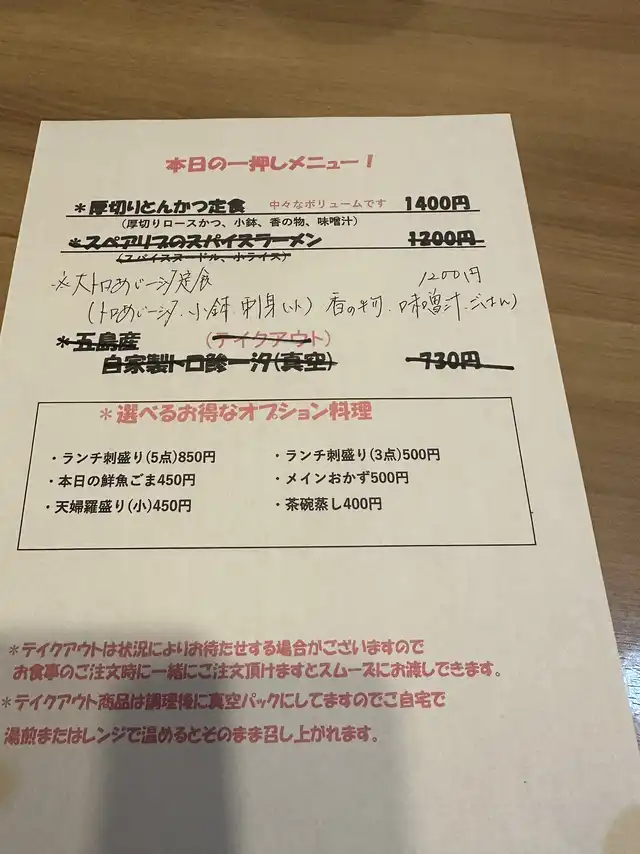 本日の一押しメニュー!
*厚切りとんかつ定食 中々なボリュームです 1400円
(厚切りロースかつ、小鉢、香の物、味噌汁)
*スペアリブのスパイスラーメン 1200円
(スパイスヌードル、小ライス)
※大トロあじ一汐定食 1200円
(トロあじ一汐、小鉢、刺身 香の物、味噌汁、ごはん)
*五島産 (テイクアウト)
自家製トロ鯵一汐(真空) 730円
*選べるお得なオプション料理
・ランチ刺盛り(5点)850円 ・ランチ刺盛り(3点)500円
・本日の鮮魚ごま450円 ・メインおかず500円
・天婦羅盛り(小)450円 ・茶碗蒸し400円
*テイクアウトは状況によりお待たせする場合がございますので
お食事のご注文時に一緒にご注文頂けますとスムーズにお渡しできます。
*テイクアウト商品は調理後に真空パックにしてますのでご自宅で
湯煎またはレンジで温めるとそのまま召し上がれます。